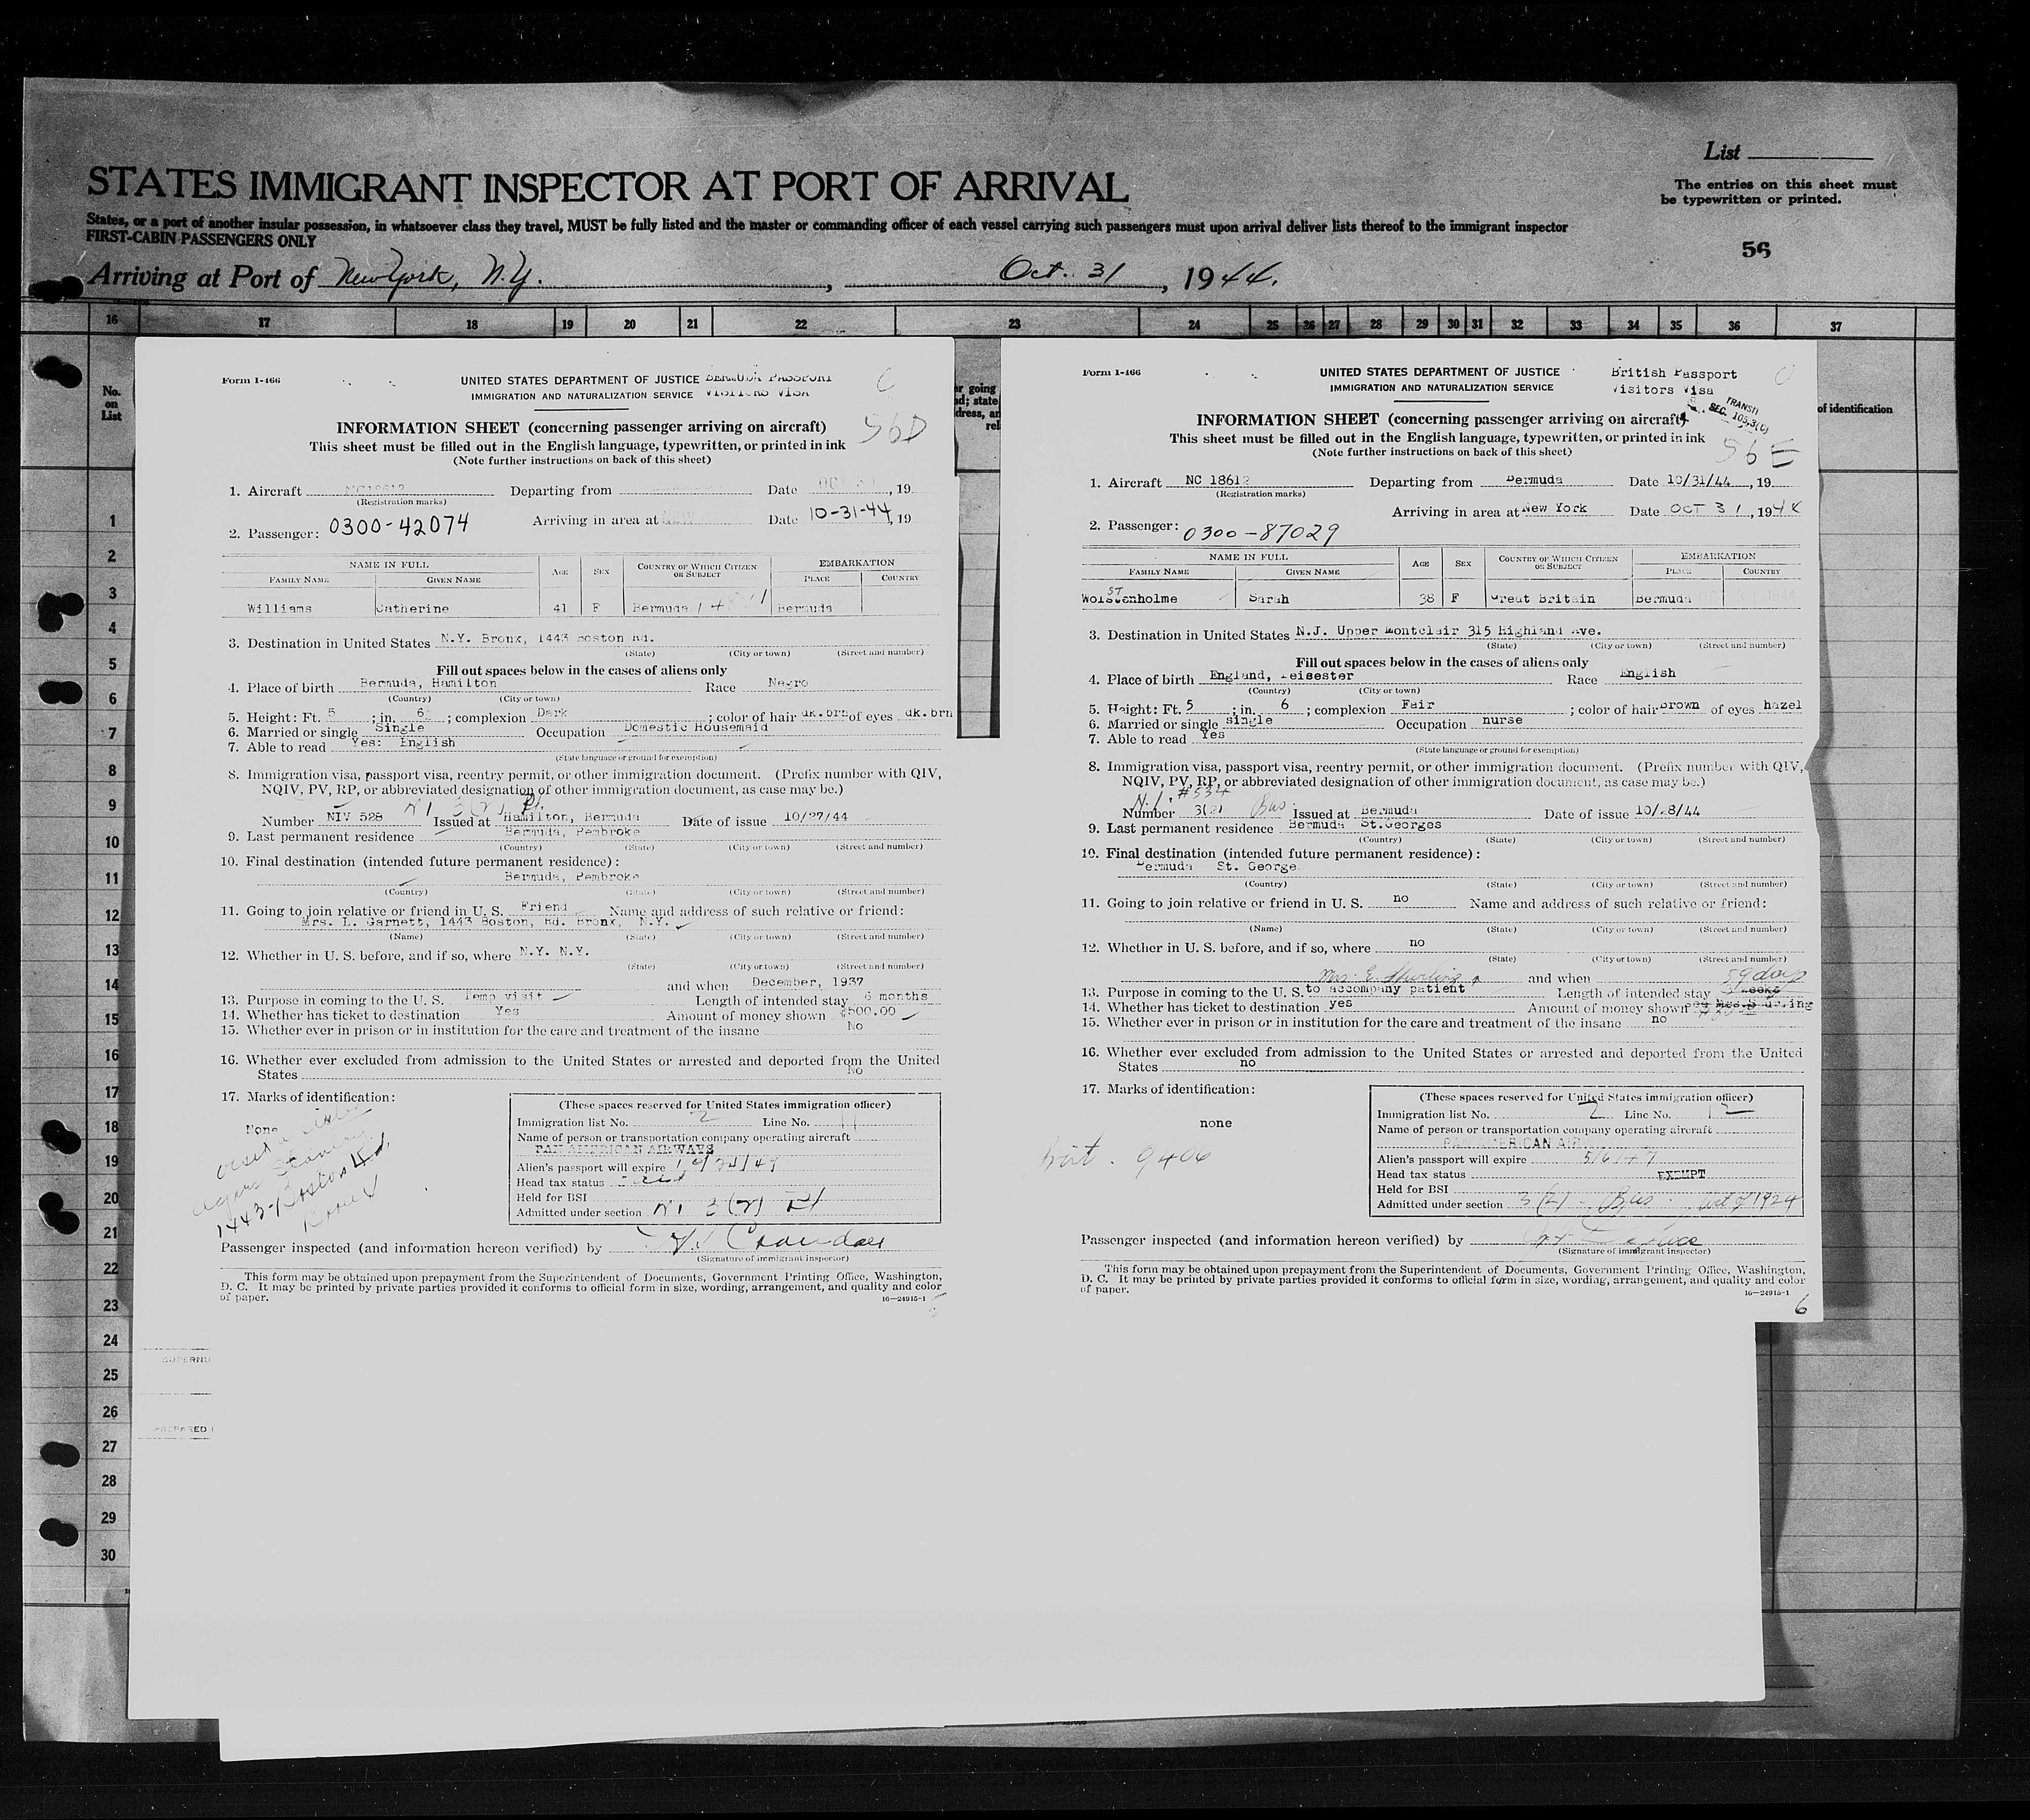 List
STATES IMMIGRANT INSPECTOR AT PORT OF ARRIVAL
The entries on this sheet must
be typewritten or printed.
States, or a port of another insular possession, in whatsoever class they travel, MUST be fully listed and the master or commanding officer of each vessel carrying such passengers must upon arrival deliver lists thereof to the immigrant inspector
FIRST-CABIN PASSENGERS ONLY
56
Arriving at Port of New York, N.Y., Oct. 31, 1944.
16 17 18 19 20 21 22 23 24 25 26 27 28 29 30 31 32 33 34 35 36 37
No.
on
List
of identification
1
2
3
4
5
6
7
8
9
10
11
12
13
14
15
16
17
18
19
20
21
22
23
24
25
26
27
28
29
30
Form I-466
UNITED STATES DEPARTMENT OF JUSTICE BERMUDA PASSPORT
IMMIGRATION AND NATURALIZATION SERVICE VISITORS VISA
C
56D
INFORMATION SHEET (concerning passenger arriving on aircraft)
This sheet must be filled out in the English language, typewritten, or printed in ink
(Note further instructions on back of this sheet)
1. Aircraft NC18612 Departing from Date OCT 31, 19
(Registration marks)
Arriving in area at NEW Date 10-31-44, 19
2. Passenger: 0300-42074
NAME IN FULL AGE SEX COUNTRY OF WHICH CITIZEN OR SUBJECT EMBARKATION
FAMILY NAME GIVEN NAME PLACE COUNTRY
Williams Catherine 41 F Bermuda Bermuda
3. Destination in United States N.Y. Bronx, 1443 Boston Rd.
(State) (City or town) (Street and number)
Fill out spaces below in the cases of aliens only
4. Place of birth Bermuda, Hamilton Race Negro
(Country) (City or town)
5. Height: Ft. 5 ; in. 6 ; complexion Dark ; color of hair dk.brn of eyes dk.brn
6. Married or single Single Occupation Domestic Housemaid
7. Able to read Yes: English
(State language or ground for exemption)
8. Immigration visa, passport visa, reentry permit, or other immigration document. (Prefix number with QIV,
NQIV, PV, RP, or abbreviated designation of other immigration document, as case may be.)
3(2) Pl.
Number NIV 528 Issued at Hamilton, Bermuda Date of issue 10/27/44
9. Last permanent residence Bermuda, Pembroke
(Country) (State) (City or town) (Street and number)
10. Final destination (intended future permanent residence):
Bermuda, Pembroke
(Country) (State) (City or town) (Street and number)
11. Going to join relative or friend in U. S. Friend Name and address of such relative or friend:
Mrs. L. Garnett, 1443 Boston, Rd. Bronx, N.Y.
(Name) (State) (City or town) (Street and number)
12. Whether in U. S. before, and if so, where N.Y. N.Y.
(State) (City or town) (Street and number)
and when December, 1937
13. Purpose in coming to the U. S. Temp visit Length of intended stay 6 months
14. Whether has ticket to destination Yes Amount of money shown $500.00
15. Whether ever in prison or in institution for the care and treatment of the insane No
16. Whether ever excluded from admission to the United States or arrested and deported from the United
States No
17. Marks of identification:
None
1443-Boston Rd.
Bronx
(These spaces reserved for United States immigration officer)
Immigration list No. 2 Line No. 11
Name of person or transportation company operating aircraft
PAN AMERICAN AIRWAYS
Alien's passport will expire
Head tax status
Held for BSI
Admitted under section 3(2) Pl
Passenger inspected (and information hereon verified) by
(Signature of immigrant inspector)
This form may be obtained upon prepayment from the Superintendent of Documents, Government Printing Office, Washington,
D. C. It may be printed by private parties provided it conforms to official form in size, wording, arrangement, and quality and color
of paper.
16—24915-1
5
Form I-466
UNITED STATES DEPARTMENT OF JUSTICE British Passport
IMMIGRATION AND NATURALIZATION SERVICE Visitors Visa
TRANSIT
SEC. 105.3(C)
56E
INFORMATION SHEET (concerning passenger arriving on aircraft)
This sheet must be filled out in the English language, typewritten, or printed in ink
(Note further instructions on back of this sheet)
1. Aircraft NC 18612 Departing from Bermuda Date 10/31/44, 19
(Registration marks)
Arriving in area at New York Date OCT 31, 1944
2. Passenger: 0300-87029
NAME IN FULL AGE SEX COUNTRY OF WHICH CITIZEN OR SUBJECT EMBARKATION
FAMILY NAME GIVEN NAME PLACE COUNTRY
Wolstenholme Sarah 38 F Great Britain Bermuda
3. Destination in United States N.J. Upper Montclair 315 Highland Ave.
(State) (City or town) (Street and number)
Fill out spaces below in the cases of aliens only
4. Place of birth England, Leisester Race English
(Country) (City or town)
5. Height: Ft. 5 ; in. 6 ; complexion Fair ; color of hair brown of eyes hazel
6. Married or single single Occupation nurse
7. Able to read Yes
(State language or ground for exemption)
8. Immigration visa, passport visa, reentry permit, or other immigration document. (Prefix number with QIV,
NQIV, PV, RP, or abbreviated designation of other immigration document, as case may be.)
N.I. #534
Number 3(2) Bus. Issued at Bermuda Date of issue 10/28/44
9. Last permanent residence Bermuda St.Georges
(Country) (State) (City or town) (Street and number)
10. Final destination (intended future permanent residence):
Bermuda St. George
(Country) (State) (City or town) (Street and number)
11. Going to join relative or friend in U. S. no Name and address of such relative or friend:
(Name) (State) (City or town) (Street and number)
12. Whether in U. S. before, and if so, where no
(State) (City or town) (Street and number)
Mrs. E. Spurling and when 59 days
13. Purpose in coming to the U. S. to accompany patient Length of intended stay weeks
14. Whether has ticket to destination yes Amount of money shown
15. Whether ever in prison or in institution for the care and treatment of the insane no
16. Whether ever excluded from admission to the United States or arrested and deported from the United
States no
17. Marks of identification:
none
Brit. 9406
(These spaces reserved for United States immigration officer)
Immigration list No. 2 Line No. 12
Name of person or transportation company operating aircraft
PAN AMERICAN AIR
Alien's passport will expire 5/6/47
Head tax status EXEMPT
Held for BSI
Admitted under section 3(2) - Bus. Act of 1924
Passenger inspected (and information hereon verified) by
(Signature of immigrant inspector)
This form may be obtained upon prepayment from the Superintendent of Documents, Government Printing Office, Washington,
D. C. It may be printed by private parties provided it conforms to official form in size, wording, arrangement, and quality and color
of paper.
16—24915-1
6